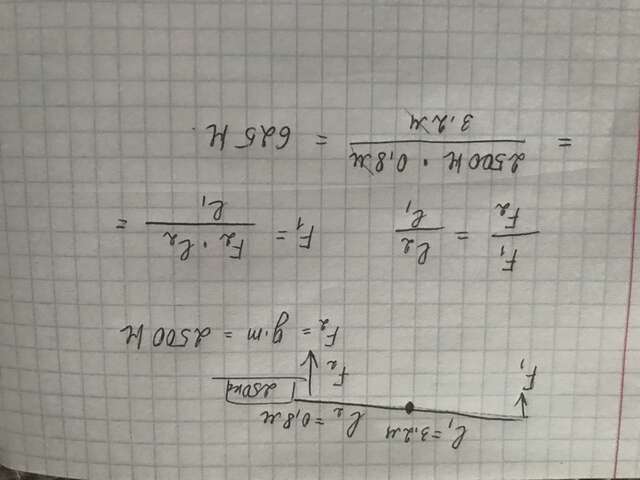 l₁=3,2м l₂=0,8м
250кг
F₁ F₂
F₂ = g·m = 2500 Н
F₁/F₂ = l₂/l₁ F₁ = F₂ · l₂ / l₁ =
= 2500 Н · 0,8 м / 3,2 м = 625 Н